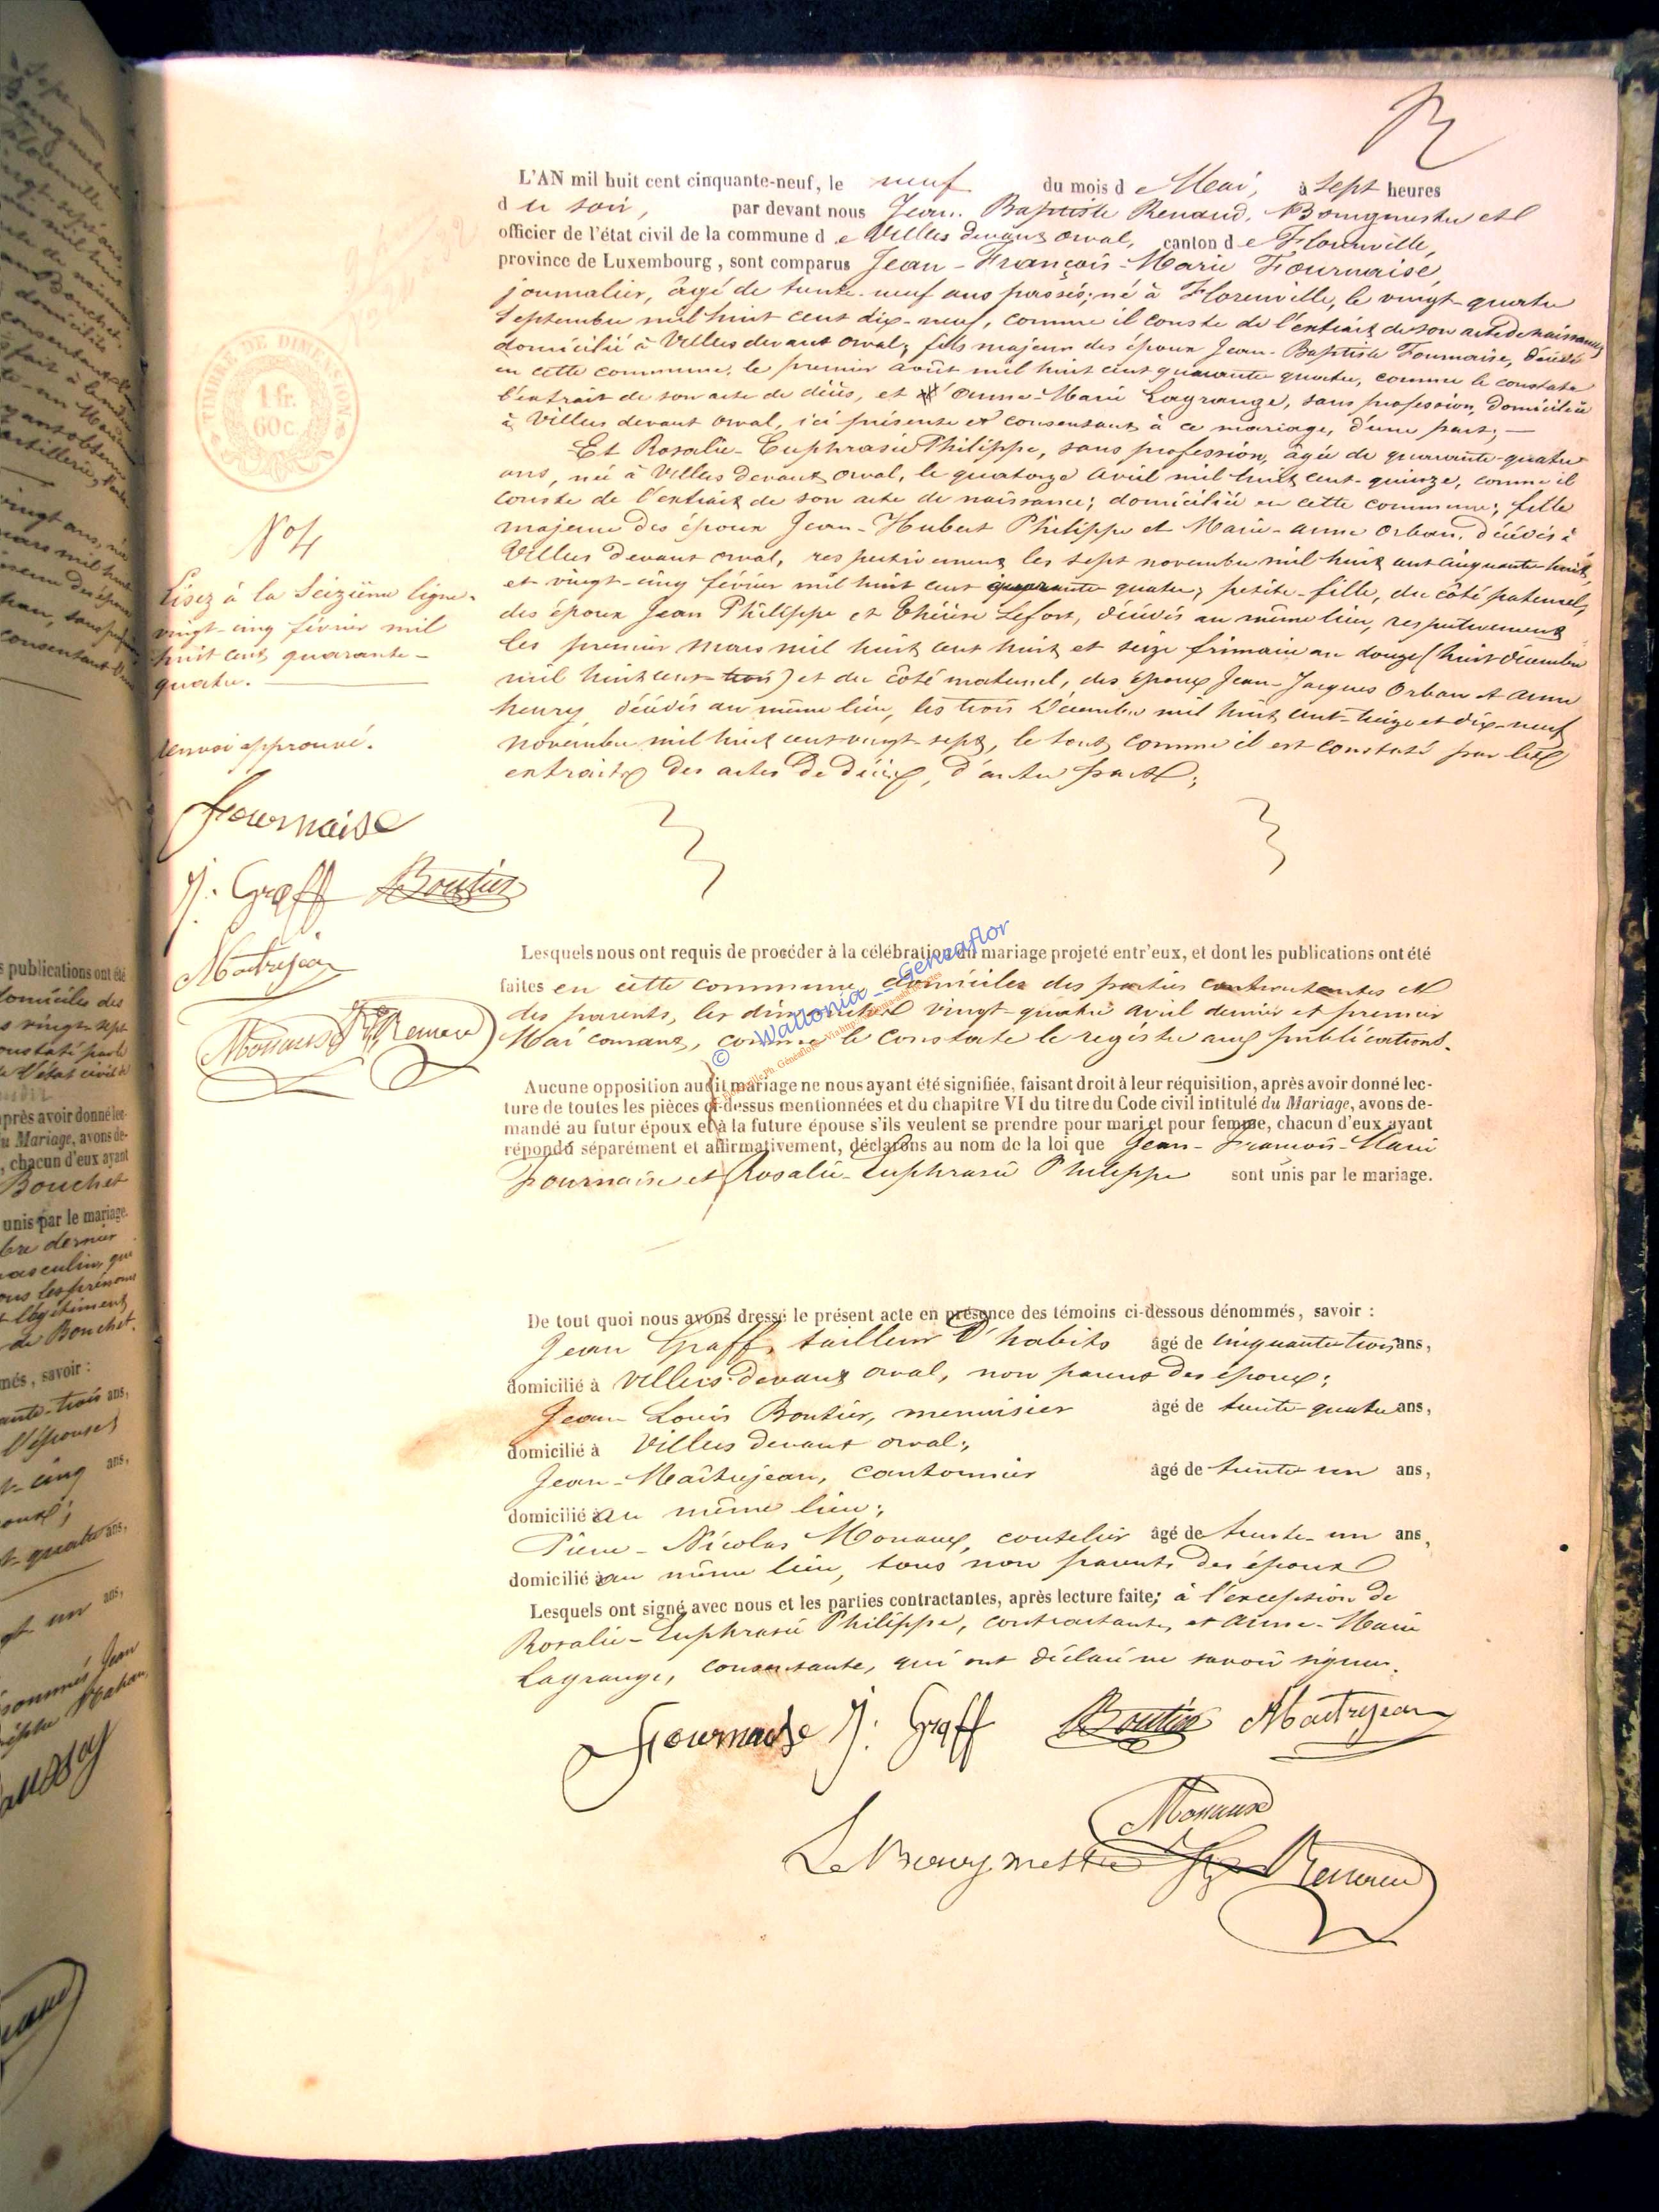 L'AN mil huit cent cinquante-neuf, le neuf du mois de Mai, à sept heures
du soir, par devant nous Jean-Baptiste Renaud, Bourgmestre et
officier de l'état civil de la commune de Villers devant orval, canton de Florenville,
province de Luxembourg, sont comparus Jean-François-Marie Fournaise,
journalier, âgé de trente-neuf ans passés, né à Florenville, le vingt-quatre
Septembre mil huit cent dix-neuf, comme il conste de l'extrait de son acte de naissance,
domicilié à Villers devant orval, fils majeur des époux Jean-Baptiste Fournaise, décédé
en cette commune, le premier août mil huit cent quarante quatre, comme le constate
l'extrait de son acte de décès, et d'anne-Marie Lagrange, sans profession, domiciliée
à Villers devant orval, ici présente et consentant à ce mariage, d'une part; —
Et Rosalie-Euphrasie Philippe, sans profession, âgée de quarante-quatre
ans, née à Villers devant orval, le quatorze avril mil huit cent-quinze, comme il
conste de l'extrait de son acte de naissance; domiciliée en cette commune, fille
majeure des époux Jean-Hubert Philippe et Marie-anne Orban, décédés à
Villers devant orval, respectivement les sept novembre mil huit cent cinquante-huit,
et vingt-cinq février mil huit cent quarante quatre; petite-fille, du côté paternel,
des époux Jean Philippe et Thérèse Lefort, décédés au même lieu, respectivement
les premier mars mil huit cent huit et seize frimaire an douze (huit décembre
mil huit cent-trois) et du côté maternel, des époux Jean-Jacques Orban et anne
henry, décédés au même lieu, les trois Décembre mil huit cent-treize et dix-neuf
novembre mil huit cent vingt-sept, le tout comme il est constaté par les
extraits des actes de décès, d'autre part;
TIMBRE DE DIMENSION
1 fr.
60 c.
N° 4
Lisez à la Seizième ligne.
vingt-cinq février mil
huit cent quarante-
quatre.
renvoi approuvé.
Fournaise
J. Graff Boutier
Maitrejean
Monaux Renaud
Lesquels nous ont requis de procéder à la célébration du mariage projeté entr'eux, et dont les publications ont été
faites en cette commune, domicile des parties contractantes et
des parents, les dimanches vingt-quatre avril dernier et premier
Mai courant, comme le constate le registre aux publications.
© Wallonia - Geneaflor
Aucune opposition audit mariage ne nous ayant été signifiée, faisant droit à leur réquisition, après avoir donné lec-
ture de toutes les pièces ci-dessus mentionnées et du chapitre VI du titre du Code civil intitulé du Mariage, avons de-
mandé au futur époux et à la future épouse s'ils veulent se prendre pour mari et pour femme, chacun d'eux ayant
répondu séparément et affirmativement, déclarons au nom de la loi que Jean-François-Marie
Fournaise et Rosalie-Euphrasie Philippe sont unis par le mariage.
De tout quoi nous avons dressé le présent acte en présence des témoins ci-dessous dénommés, savoir :
Jean Graff, tailleur d'habits âgé de cinquante trois ans,
domicilié à Villers devant orval, non parent des époux;
Jean Louis Boutier, menuisier âgé de trente-quatre ans,
domicilié à Villers devant orval;
Jean-Maîtrejean, cantonnier âgé de trente un ans,
domicilié au même lieu;
Pierre-Nicolas Monaux, coutelier âgé de trente-un ans,
domicilié au même lieu, tous non parents des époux
Lesquels ont signé avec nous et les parties contractantes, après lecture faite; à l'exception de
Rosalie-Euphrasie Philippe, contractante, et anne-Marie
Lagrange, consentante, qui ont déclaré ne savoir signer.
Fournaise J. Graff Boutier Maitrejean
Monaux
Le Bourgmestre Renaud